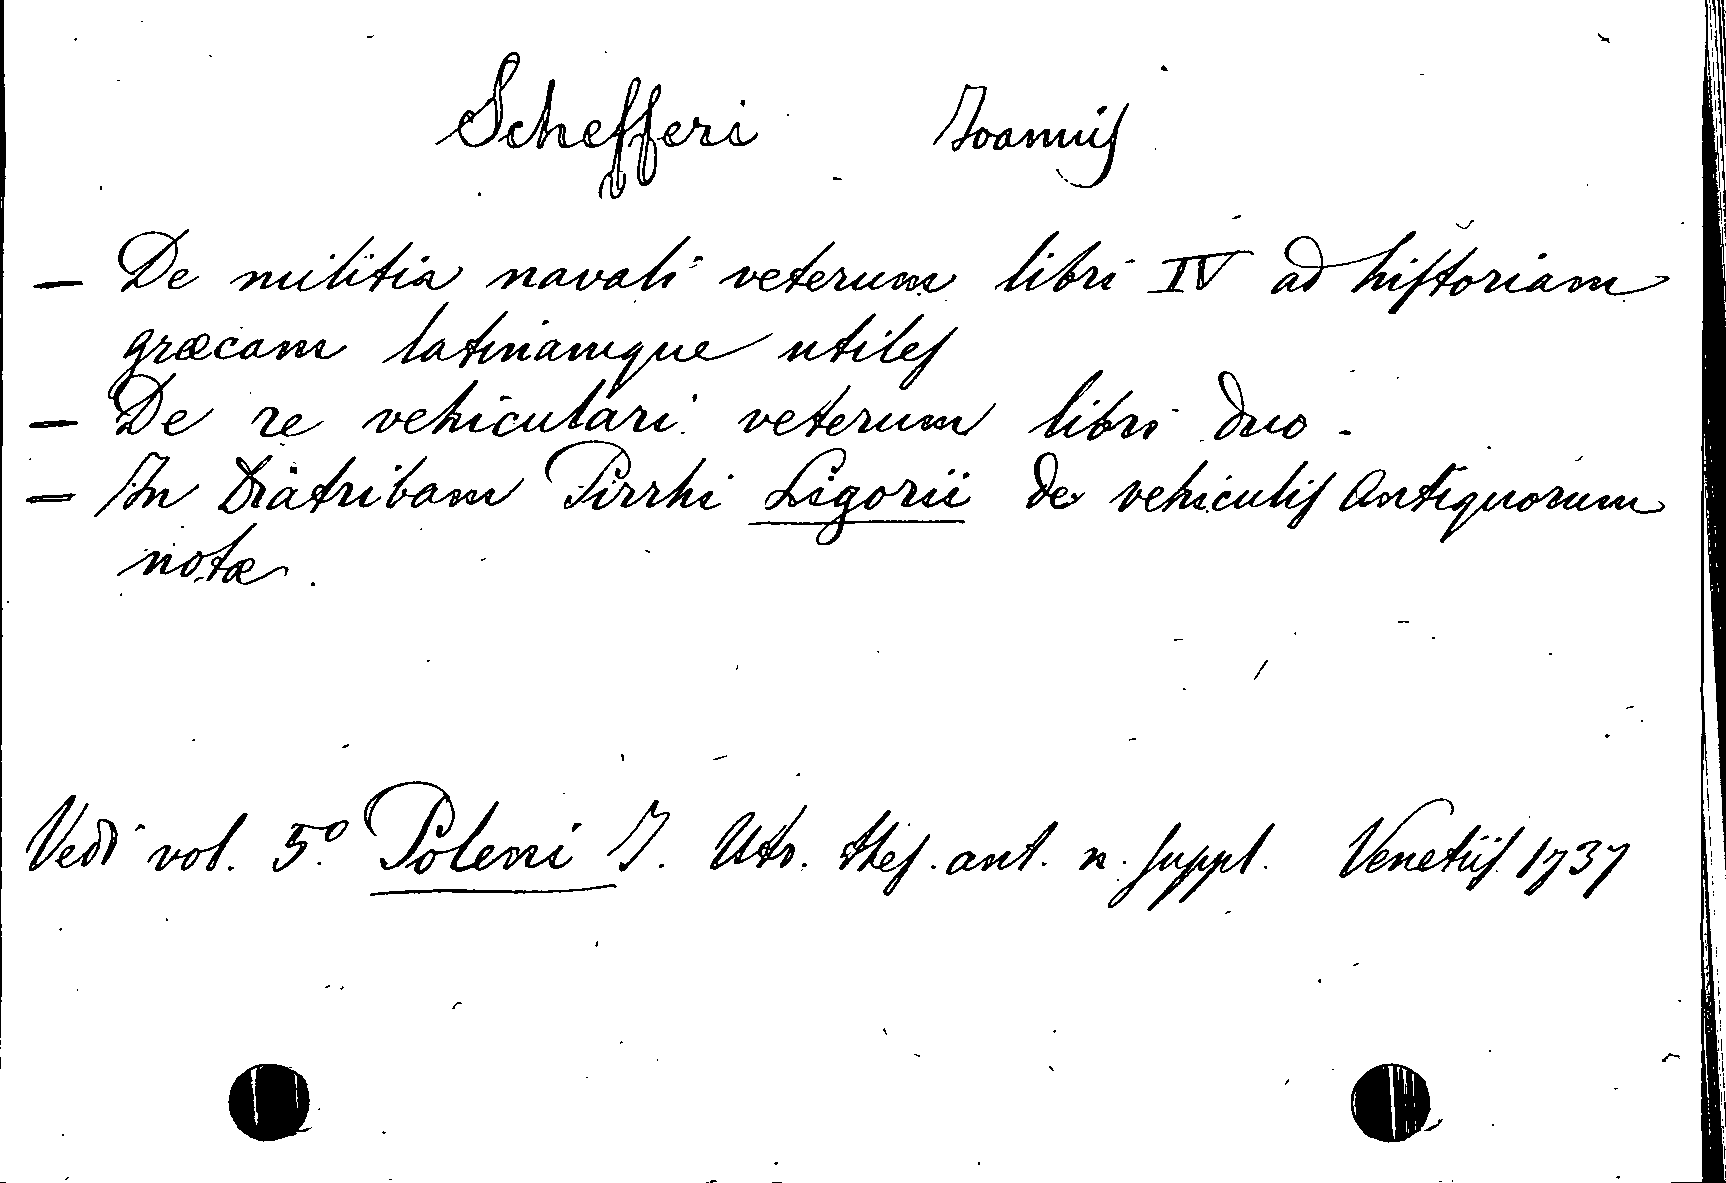 Schefferi Ioannis
— De militia navali veterum libri IV ad historiam
græcam latinamque utiles
— De re vehiculari veterum libri duo.
— In Diatribam Pirrhi Ligorii de vehiculis Antiquorum
notæ.
Vedi vol. 5.º Poleni I. Utr. thes. ant. n. suppl. Venetiis 1737